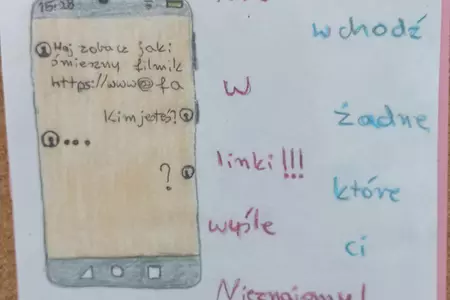 15:28
Hej zobacz jaki
śmieszny filmik
https://www@fa
Kim jesteś?
...
?
wchodź
w
żadne
linki!!!
które
wyśle
ci
Nieznajomy!